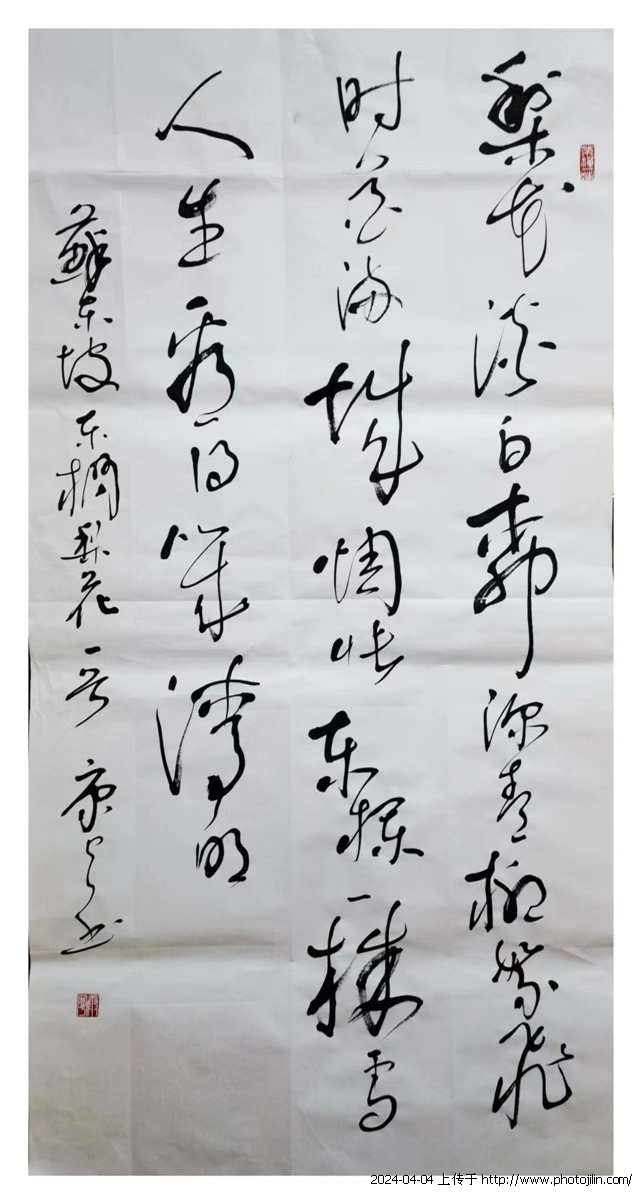 梨花淡白柳深青柳絮飛
时花满城惆怅东栏一株雪
人生看得幾清明
蘇东坡东欄梨花一首 康书
2024-04-04 上传于 http://www.photojilin.com/